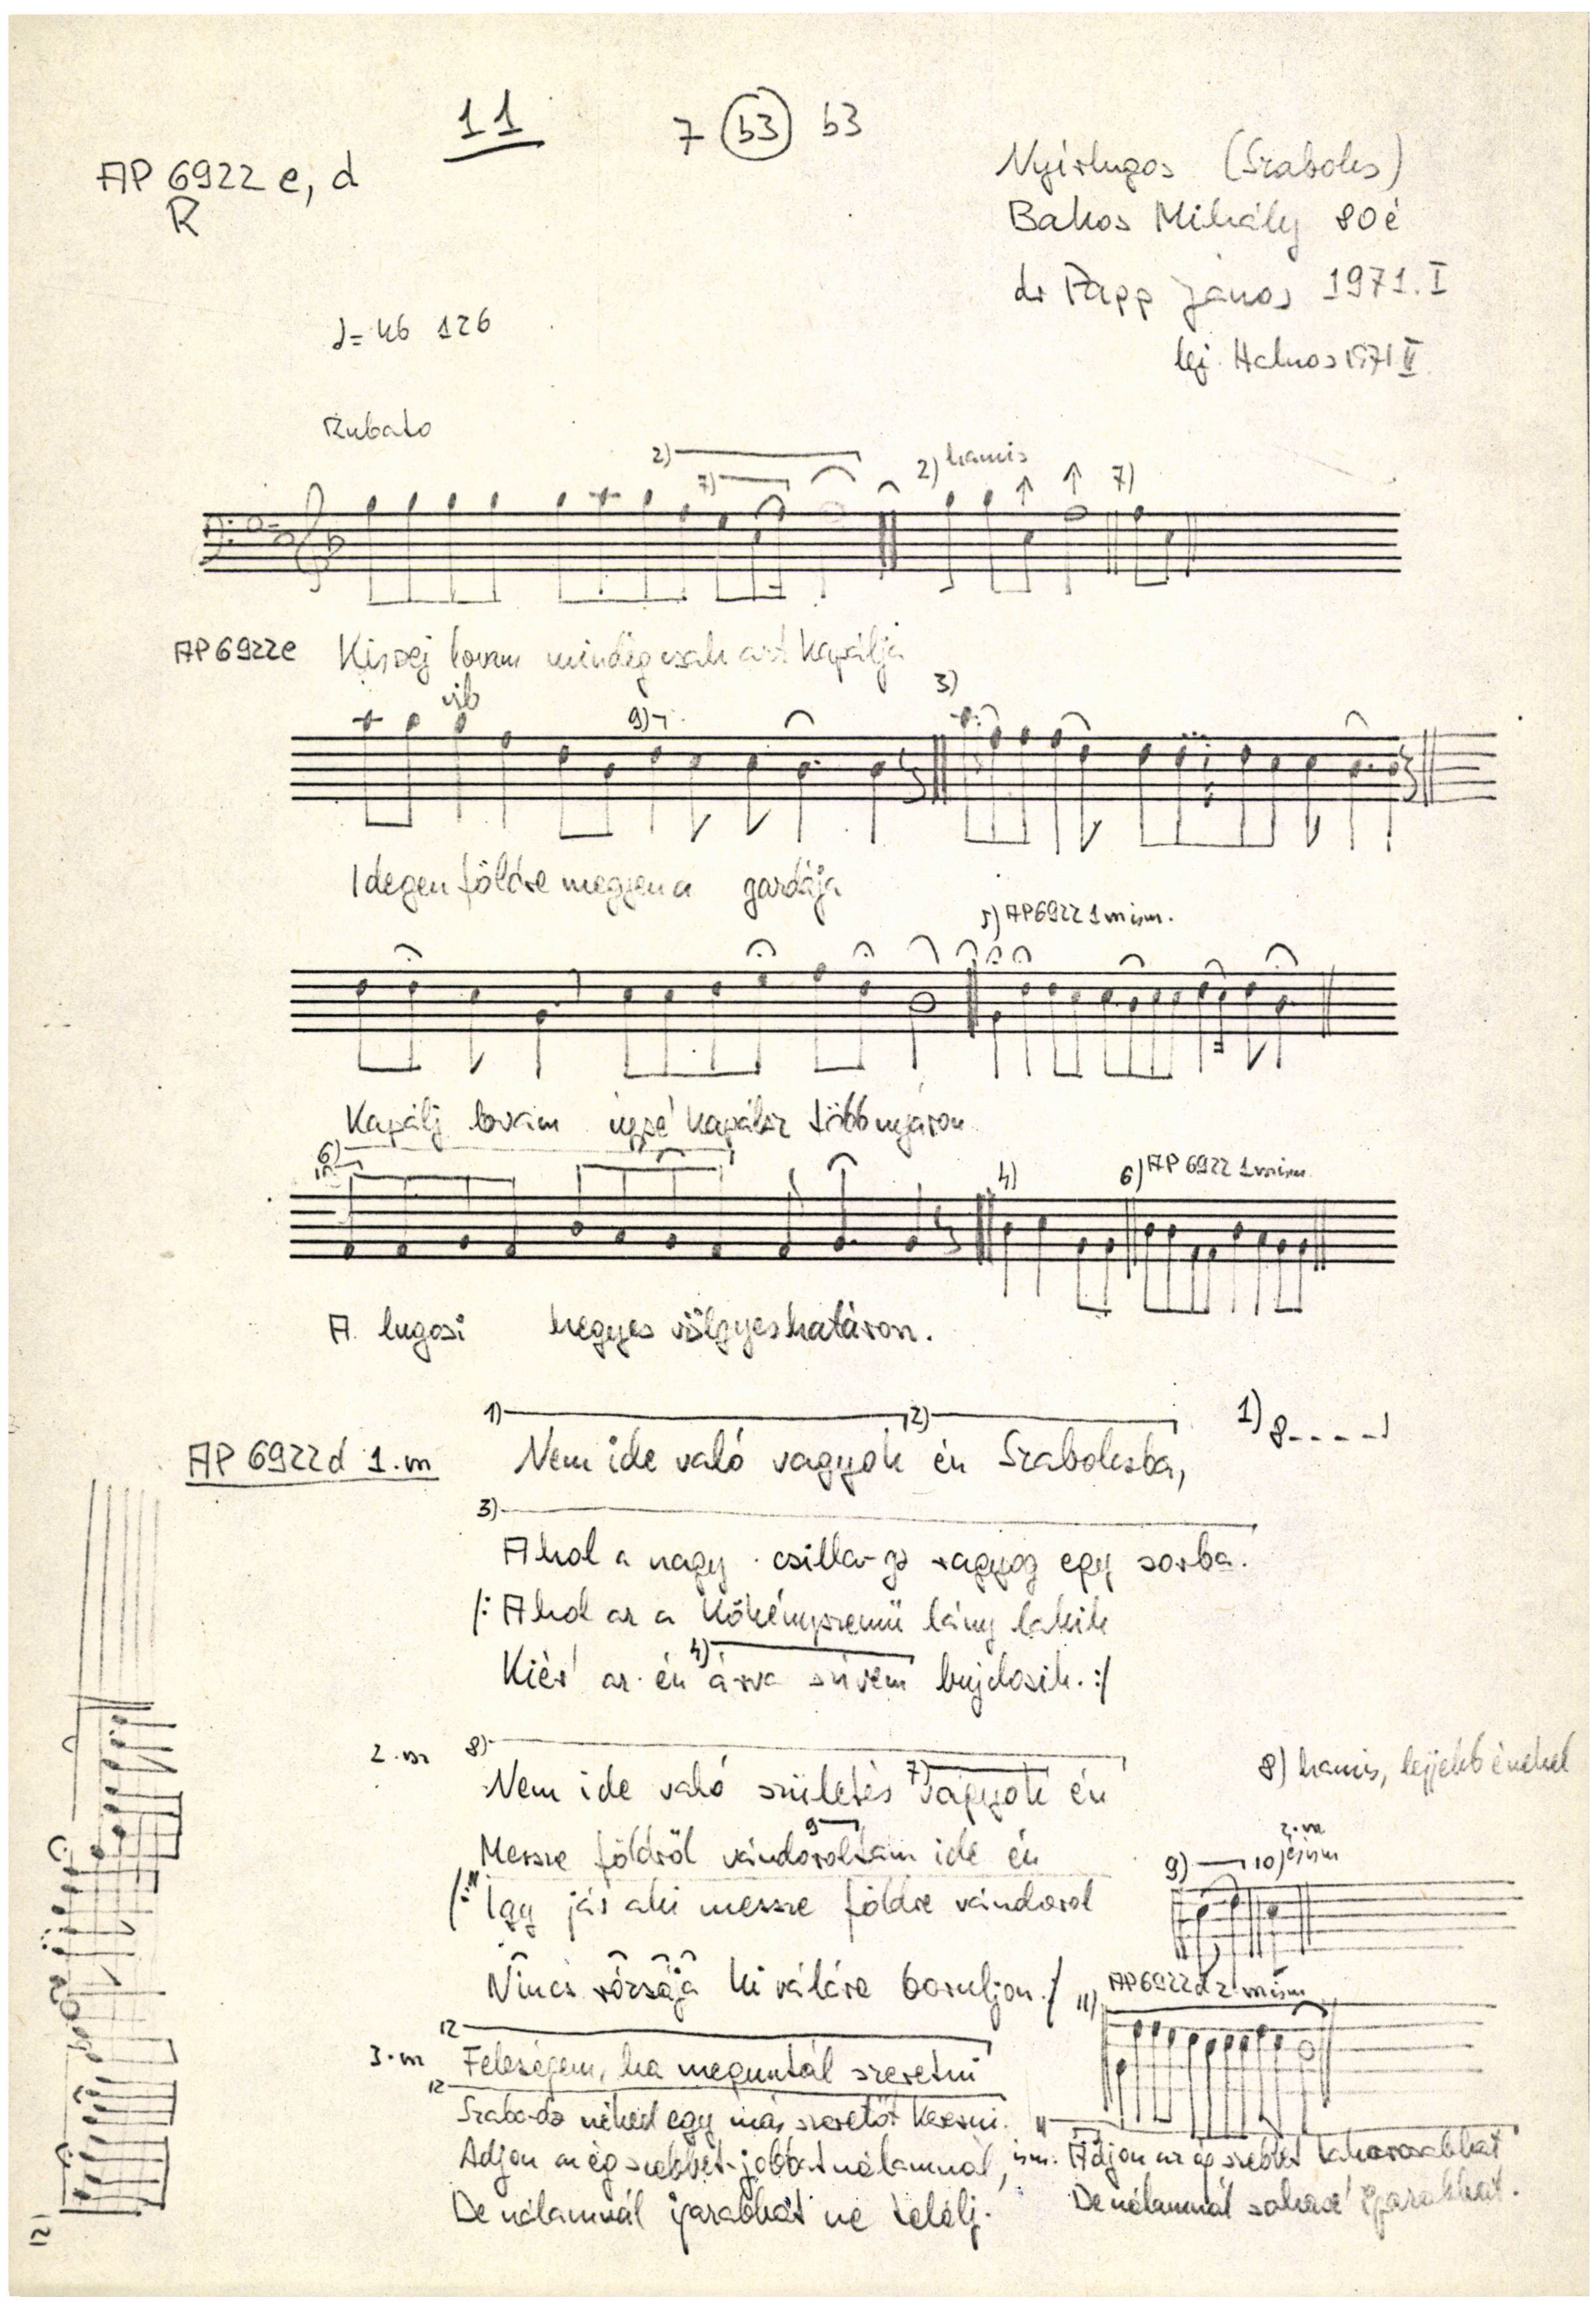 11
7 b3 b3
AP 6922 e, d
R
Nyírlugos (Szabolcs)
Bakos Mihály 80é
dr Papp János 1971. I
lej. Halmos 1971 II
126
Rubato
2)
7)
2) hamis
7)
AP 6922e Kissej lovam mindég csak azt kapálja
vib
9)
3)
Idegen földre megyen a gazdája
5) AP 6922 1 m ism.
Kapálj lovam kapálsz több nyáron
6)
4)
6) AP 6922 1 m ism.
A lugosi hegyes völgyes határon.
1) 2)
1) 8----
AP 6922d 1. m Nem ide való vagyok én Szabolcsba,
3)
Ahol a nagy csilla-gs ragyog egy sorba.
/: Ahol az a kökényszemü lány lakik
4)
Kiér' az én árva szívem bujdosik. :/
2. m 8)
7)
Nem ide való születés vagyok én
8) hamis, lejjebb énekel
9
Messze földröl vándoroltam ide én
9) 10) 2. m ism
/: 11 Igy jár aki messze földre vándorol
Nincs rózsája ki válára boruljon :/
11) AP 6922d 2 m ism
12
3. m Feleségem, ha meguntál szeretni
12
Szabads néked egy más szeretöt keresni.
11
Adjon az ég szebbet-jobbat nálamnál,
ism. Adjon az ég szebbet takarosabbat
De nálamnál igazabbat ne találj.
De nálamnál sohasé igazabbat.
12